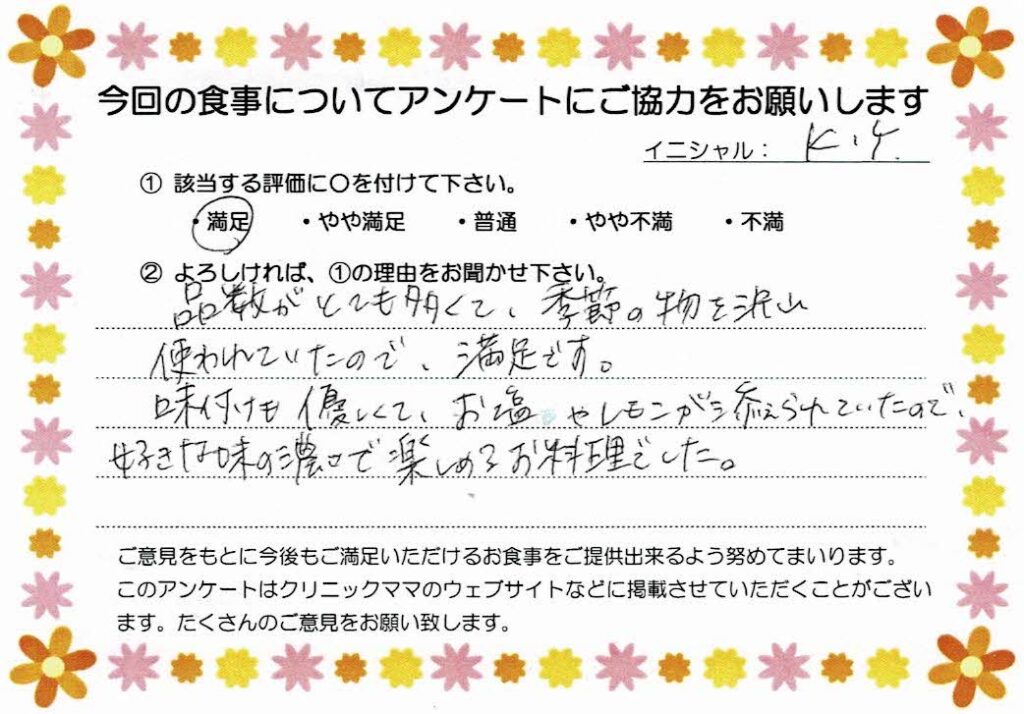 今回の食事についてアンケートにご協力をお願いします
イニシャル： K.Y.
① 該当する評価に〇を付けて下さい。
・満足 ・やや満足 ・普通 ・やや不満 ・不満
② よろしければ、①の理由をお聞かせ下さい。
品数がとても多くて、季節の物を沢山
使われていたので、満足です。
味付けも優しくて、お塩やレモンが添えられていたので、
好きな味の濃さで楽しめるお料理でした。
ご意見をもとに今後もご満足いただけるお食事をご提供出来るよう努めてまいります。
このアンケートはクリニックママのウェブサイトなどに掲載させていただくことがござい
ます。たくさんのご意見をお願い致します。